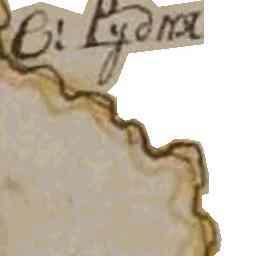 С: Рудня